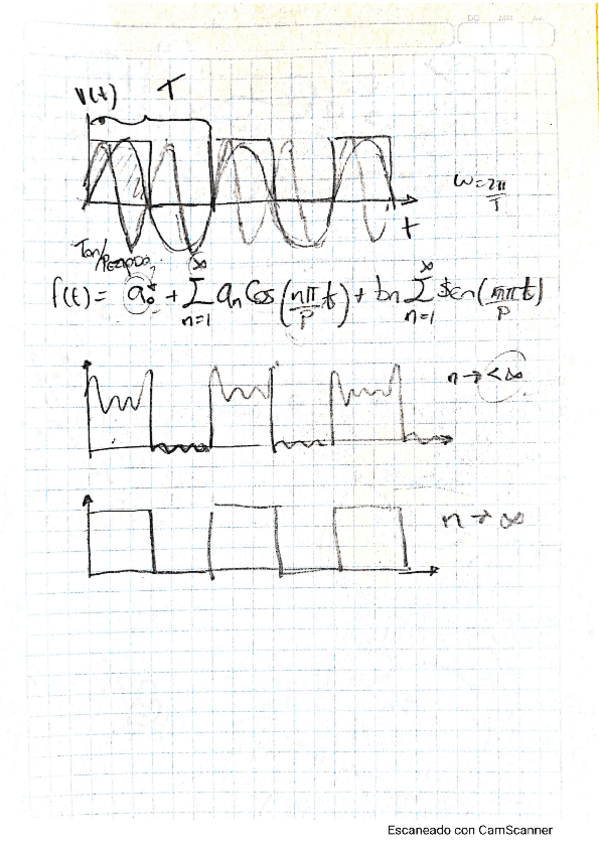 DD MM AA
V(t) T
ω = 2π/T
t
Ton/PERIODO
f(t) = a₀ + Σ n=1 ∞ an Cos(nπ/P t) + bn Σ n=1 ∞ Sen(nπt/P)
n → < ∞
n → ∞
Escaneado con CamScanner